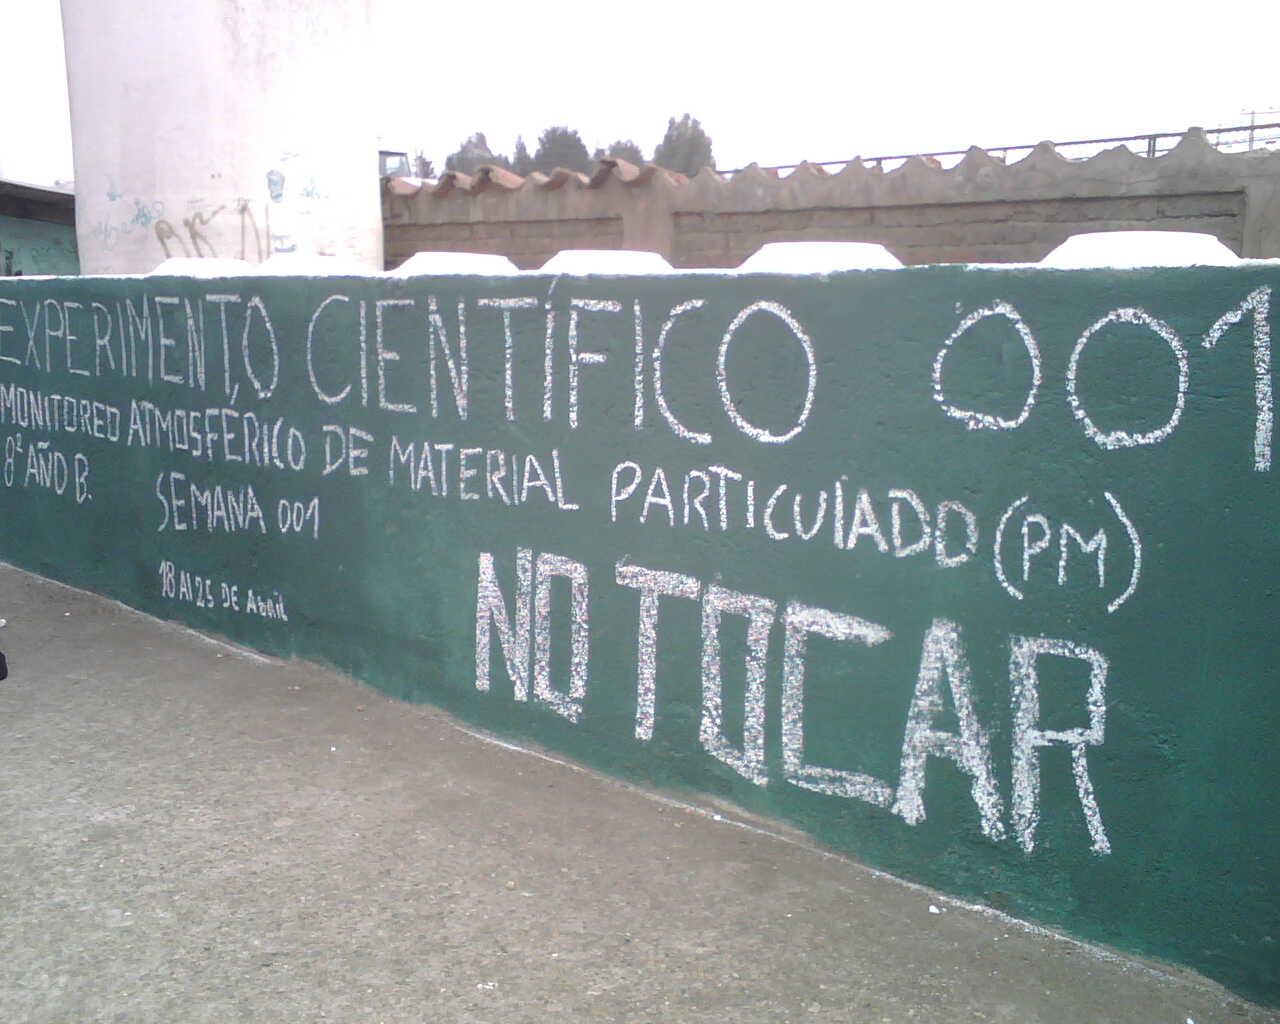 EXPERIMENTO CIENTÍFICO 001
MONITOREO ATMOSFERICO DE MATERIAL PARTICULADO (PM)
8º AÑO B.
SEMANA 001
18 Al 25 DE Abril
NO TOCAR